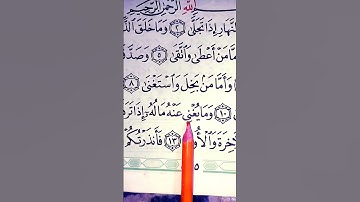 اللَّهِ الرَّحْمَٰنِ الرَّحِيمِ
النَّهَارِ إِذَا تَجَلَّىٰ ٢ وَمَا خَلَقَ
مَّا مَنْ أَعْطَىٰ وَاتَّقَىٰ ٥ وَصَدَّ
وَأَمَّا مَنۢ بَخِلَ وَاسْتَغْنَىٰ ٨
١٠ وَمَا يُغْنِي عَنْهُ مَالُهُۥٓ إِذَا تَرَ
خِرَةَ وَالْأُو ١٣ فَأَنذَرْتُكُمْ
٥